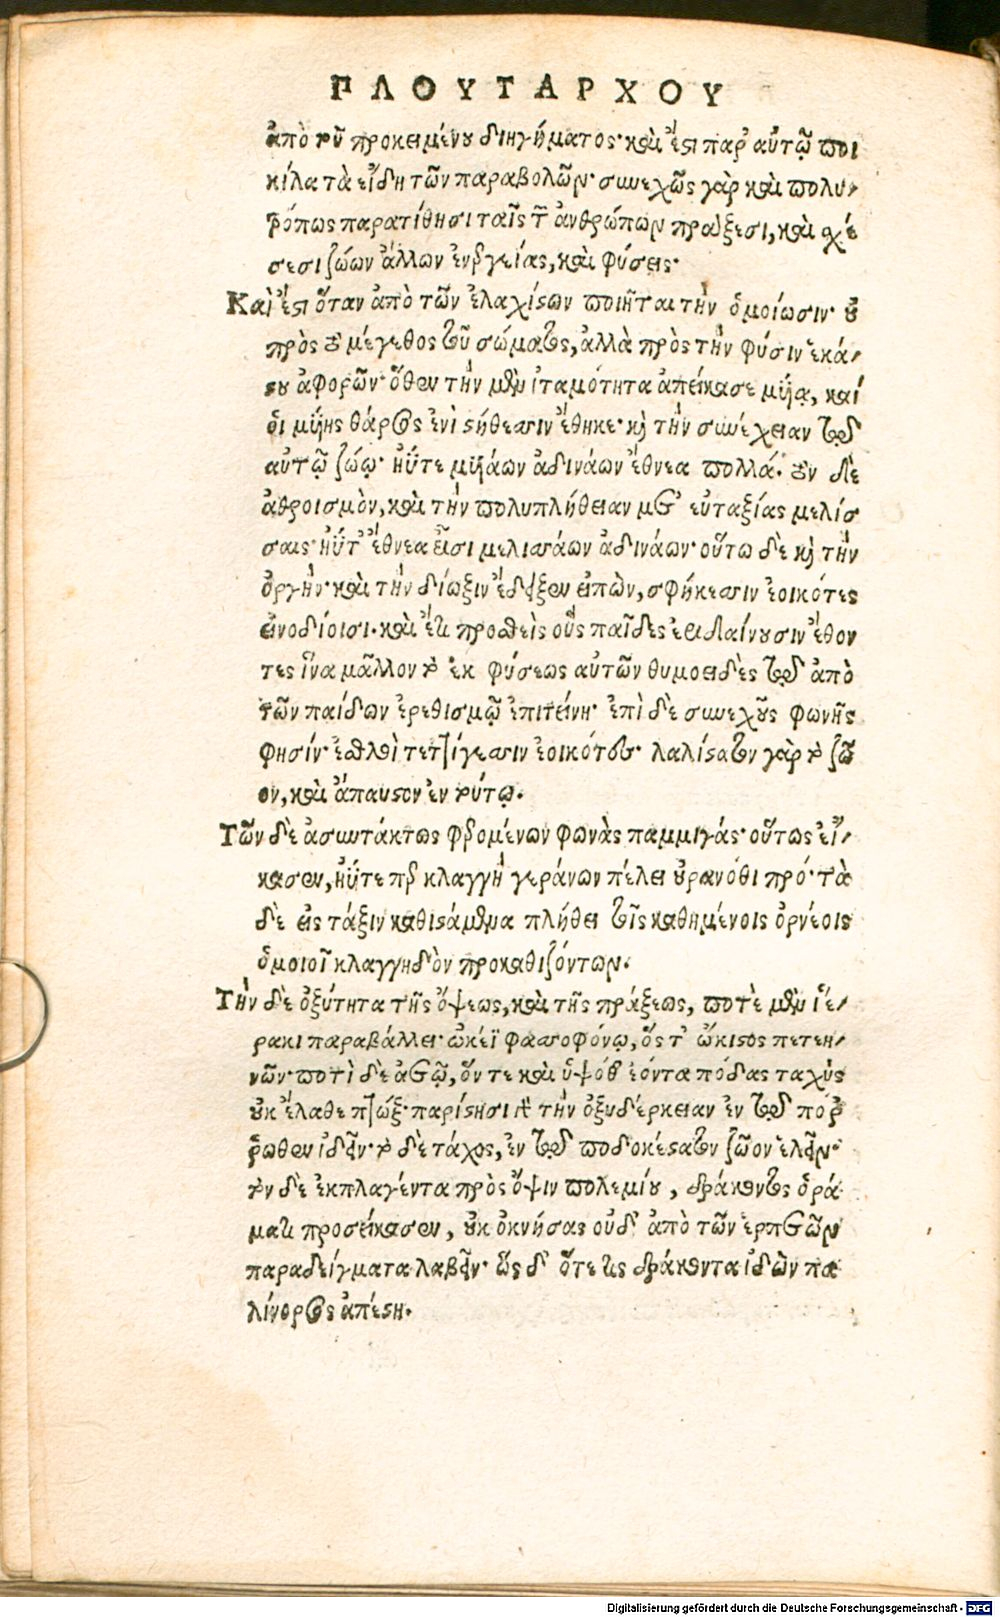 ΠΛΟΥΤΑΡΧΟΥ
ἀπὸ τοῦ προκειμένου διηγήματος· καὶ ἔστι παρ' αὐτῷ ποι
κίλα τὰ εἴδη τῶν παραβολῶν· συνεχῶς γὰρ καὶ πολυ-
τρόπως παρατίθησι ταῖς τῶν ἀνθρώπων πράξεσι, καὶ σχέ
σεσι ζώων ἄλλων ἐνεργείας, καὶ φύσεις·
Καὶ ἔστι ὅταν ἀπὸ τῶν ἐλαχίστων ποιῆται τὴν ὁμοίωσιν· οὐ
πρὸς τὸ μέγεθος τοῦ σώματος, ἀλλὰ πρὸς τὴν φύσιν ἑκά-
στου ἀφορῶν· ὅθεν τὴν μὲν ἰταμότητα ἀπείκασε μυίᾳ, καί
οἱ μυίης θάρσος ἐνὶ στήθεσσιν ἔθηκε· καὶ τὴν συνέχειαν τῷ
αὐτῷ ζώῳ· ἠΰτε μυιάων ἀδινάων ἔθνεα πολλά. τὸν δὲ
ἀθροισμὸν, καὶ τὴν πολυπλήθειαν μετ' εὐταξίας μελίσ
σαις· ἠΰτ' ἔθνεα εἶσι μελισσάων ἀδινάων· οὕτω δὲ καὶ τὴν
ὀργὴν· καὶ τὴν δίωξιν ἔδειξεν εἰπὼν, σφήκεσσιν ἐοικότες
εἰνοδίοισι. καὶ ἔτι προσθεὶς οὓς παῖδες ἐριδμαίνουσιν ἔθον
τες ἵνα μᾶλλον τὸ ἐκ φύσεως αὐτῶν θυμοειδὲς τῷ ἀπὸ
τῶν παίδων ἐρεθισμῷ ἐπιτείνῃ· ἐπὶ δὲ συνεχοῦς φωνῆς
φησίν· ἐσθλοὶ τεττίγεσσιν ἐοικότες· λαλίστατον γὰρ τὸ ζῶ
ον, καὶ ἄπαυστον ἐν τούτῳ.
Τῶν δὲ ἀσυντάκτως φερομένων φωνὰς παμμιγάς· οὕτως εἴ-
κασεν, ἠΰτε περ κλαγγὴ γεράνων πέλει οὐρανόθι πρό· τὰ
δὲ εἰς τάξιν καθιστάμενα πλήθει τοῖς καθημένοις ὀρνέοις
ὁμοιοῖ κλαγγηδὸν προκαθιζόντων.
Τὴν δὲ ὀξύτητα τῆς ὄψεως, καὶ τῆς πράξεως, ποτὲ μὲν ἱέ-
ρακι παραβάλλει· ὠκέϊ φασσοφόνῳ, ὅς τ' ὤκιστος πετεη-
νῶν· ποτὶ δὲ ἀετῷ, ὅν τε καὶ ὑψόθ' ἐόντα πόδας ταχὺς
οὐκ ἔλαθε πτώξ· παρίστησι δὲ τὴν ὀξυδέρκειαν ἐν τῷ πόρ
ρωθεν ἰδεῖν· τὸ δὲ τάχος, ἐν τῷ ποδοκέστατον ζῶον ἑλεῖν·
τὸν δὲ ἐκπλαγέντα πρὸς ὄψιν πολεμίου, δράκοντος ὁρά
ματι προσείκασεν, οὐκ ὀκνήσας οὐδ' ἀπὸ τῶν ἑρπετῶν
παραδείγματα λαβεῖν· ὥς δ' ὅτε τις δράκοντα ἰδὼν πα
λίνορσος ἀπέστη.
Digitalisierung gefördert durch die Deutsche Forschungsgemeinschaft - DFG